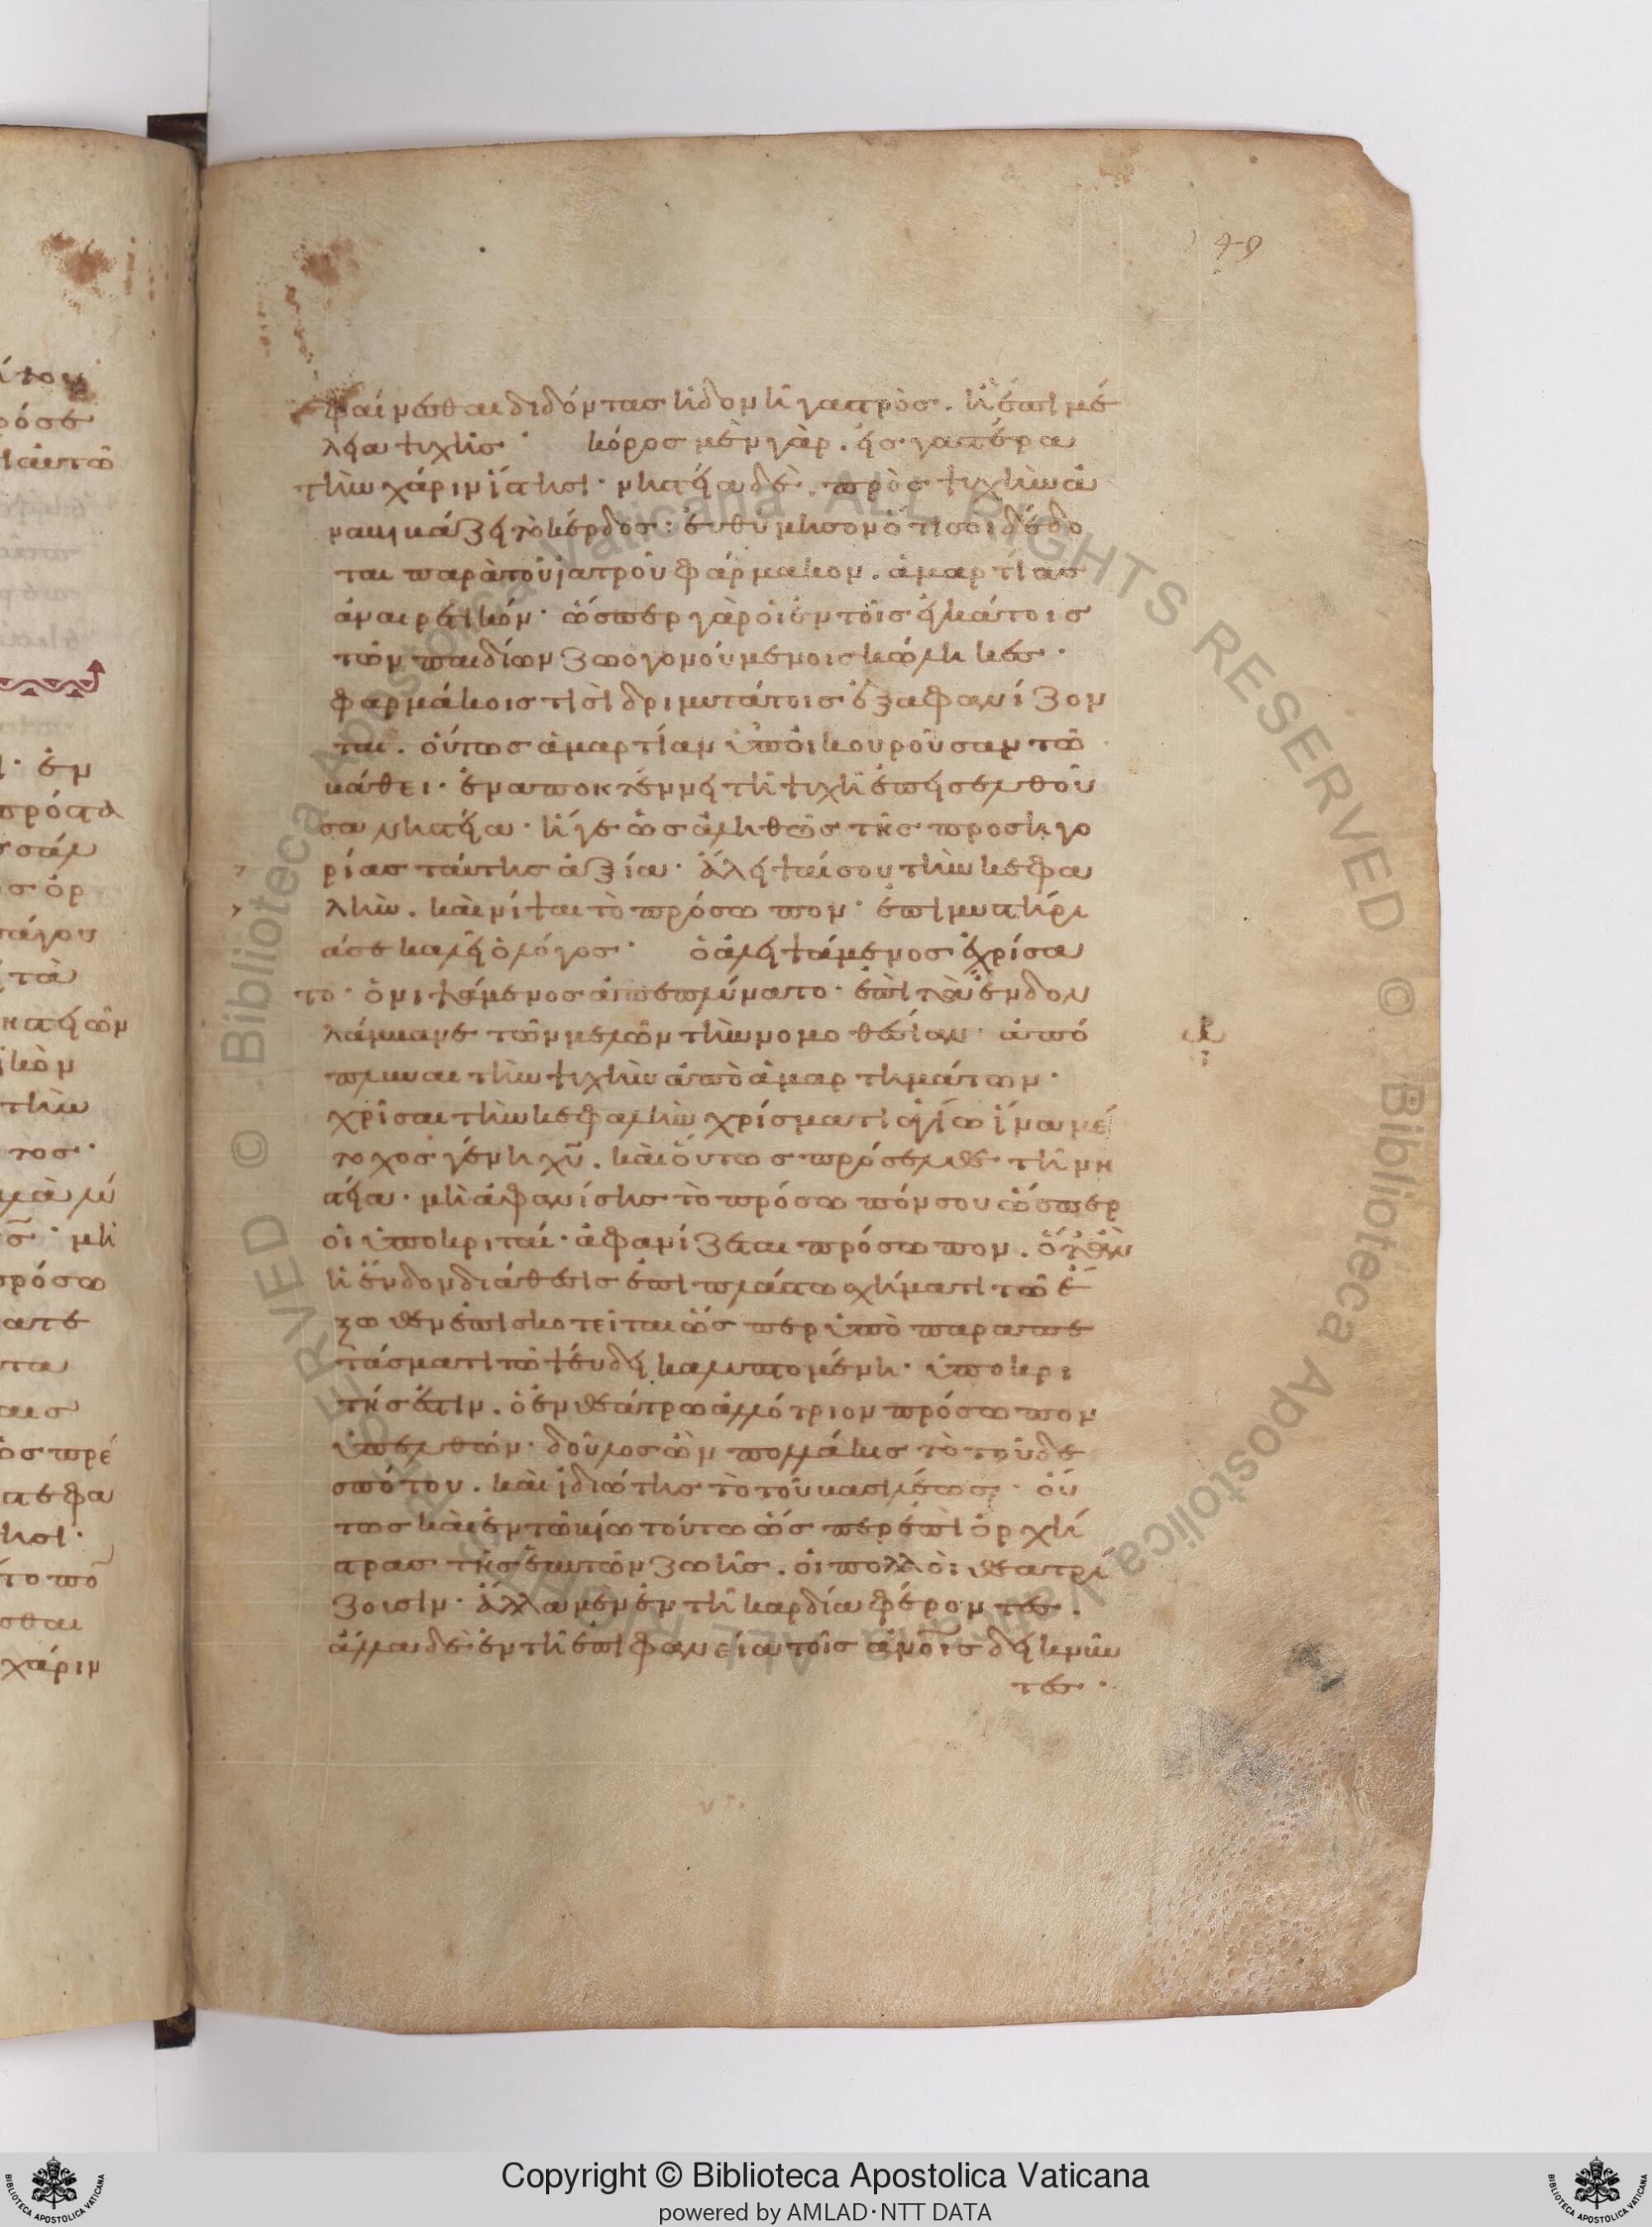 49
φαίνεσθαι διδόντας ἡδονῇ γαστρὸς. ἢ ἐπιμέ
λεια ψυχῆς· κόρος μὲν γὰρ. εἰς γαστέρα
τὴν χάριν ἵστησι· νηστεία δὲ. πρὸς ψυχὴν ἀ
ναβιβάζει τὸ κέρδος· εὐθύμησον ὅτι σοι δέδο
ται παρὰ τοῦ ἰατροῦ φάρμακον. ἁμαρτίας
ἀναιρετικόν· ὥσπερ γὰρ οἱ ἐν τοῖς ἐγκάτοις
τῶν παιδίων ζωογονούμενοι σκώληκες·
φαρμάκοις τισὶ δριμυτάτοις ἐξαφανίζον
ται. οὕτως ἁμαρτίαν ὑποικουροῦσαν τῶ
βάθει· ἐναποκτέννει τῆ ψυχῆ ἐπεισελθοῦ
σα νηστεία· ἥγε ὡς ἀληθῶς τῆς προσηγο
ρίας ταύτης ἀξία· ἄλειψαί σου τὴν κεφα
λὴν. καὶ νίψαι τὸ πρόσωπον· ἐπὶ μυστήρι
ά σε καλεῖ ὁ λόγος· ὁ ἀλειψάμενος ἐχρίσα
το· ὁ νιψάμενος ἀπεπλύνατο· ἐπὶ τὰ ἔνδον
λάμβανε τῶν μελῶν τὴν νομοθεσίαν· ἀπό
πλυναι τὴν ψυχὴν ἀπὸ ἁμαρτημάτων·
χρῖσαι τὴν κεφαλὴν χρίσματι ἁγίω ἵνα μέ
τοχος γένη χῦ. καὶ οὕτως πρόσελθε τῆ νη
στεία· μὴ ἀφανίσης τὸ πρόσωπόν σου ὥσπερ
οἱ ὑποκριταί· ἀφανίζεται πρόσωπον. ὅταν
ἡ ἔνδον διάθεσις ἐπιπλάστω σχήματι τῶ ἔ
ξωθεν ἐπισκοτεῖται ὥσπερ ὑπὸ παραπε
τάσματι τῶ ψεύδει καλυπτομένη· ὑποκρι
τής ἐστιν. ὁ ἐν θεάτρω ἀλλότριον πρόσωπον
ὑπελθών· δοῦλος ὢν πολλάκις τὸ τοῦ δε
σπότου. καὶ ἰδιώτης τὸ τοῦ βασιλέως· οὕ
τως καὶ ἐν τῶ βίω τούτω ὥσπερ ἐπὶ ὀρχή
στρας τῆς ἑαυτῶν ζωῆς. οἱ πολλοὶ θεατρί
ζουσιν· ἄλλα μεν ἐν τῆ καρδία φέροντες.
ἄλλα δὲ ἐν τῆ ἐπιφανεία τοῖς ἀνοῖς δεικνύν
τες·
Copyright © Biblioteca Apostolica Vaticana
powered by AMLAD·NTT DATA